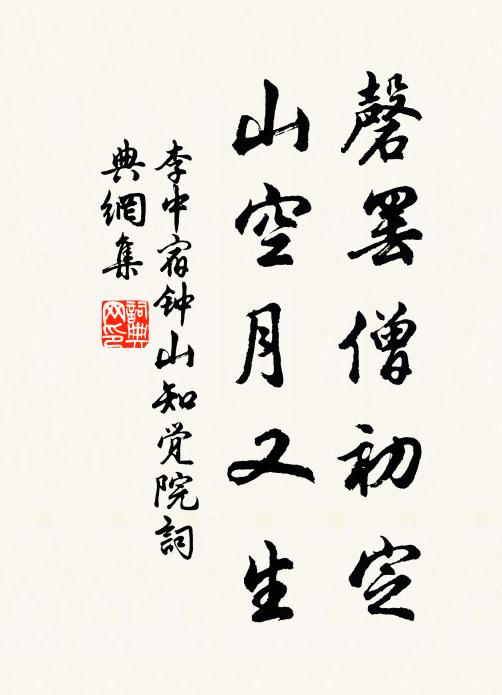 磬罢僧初定
山空月又生
李中宿钟山知觉院詞
典網集
詞典
网印